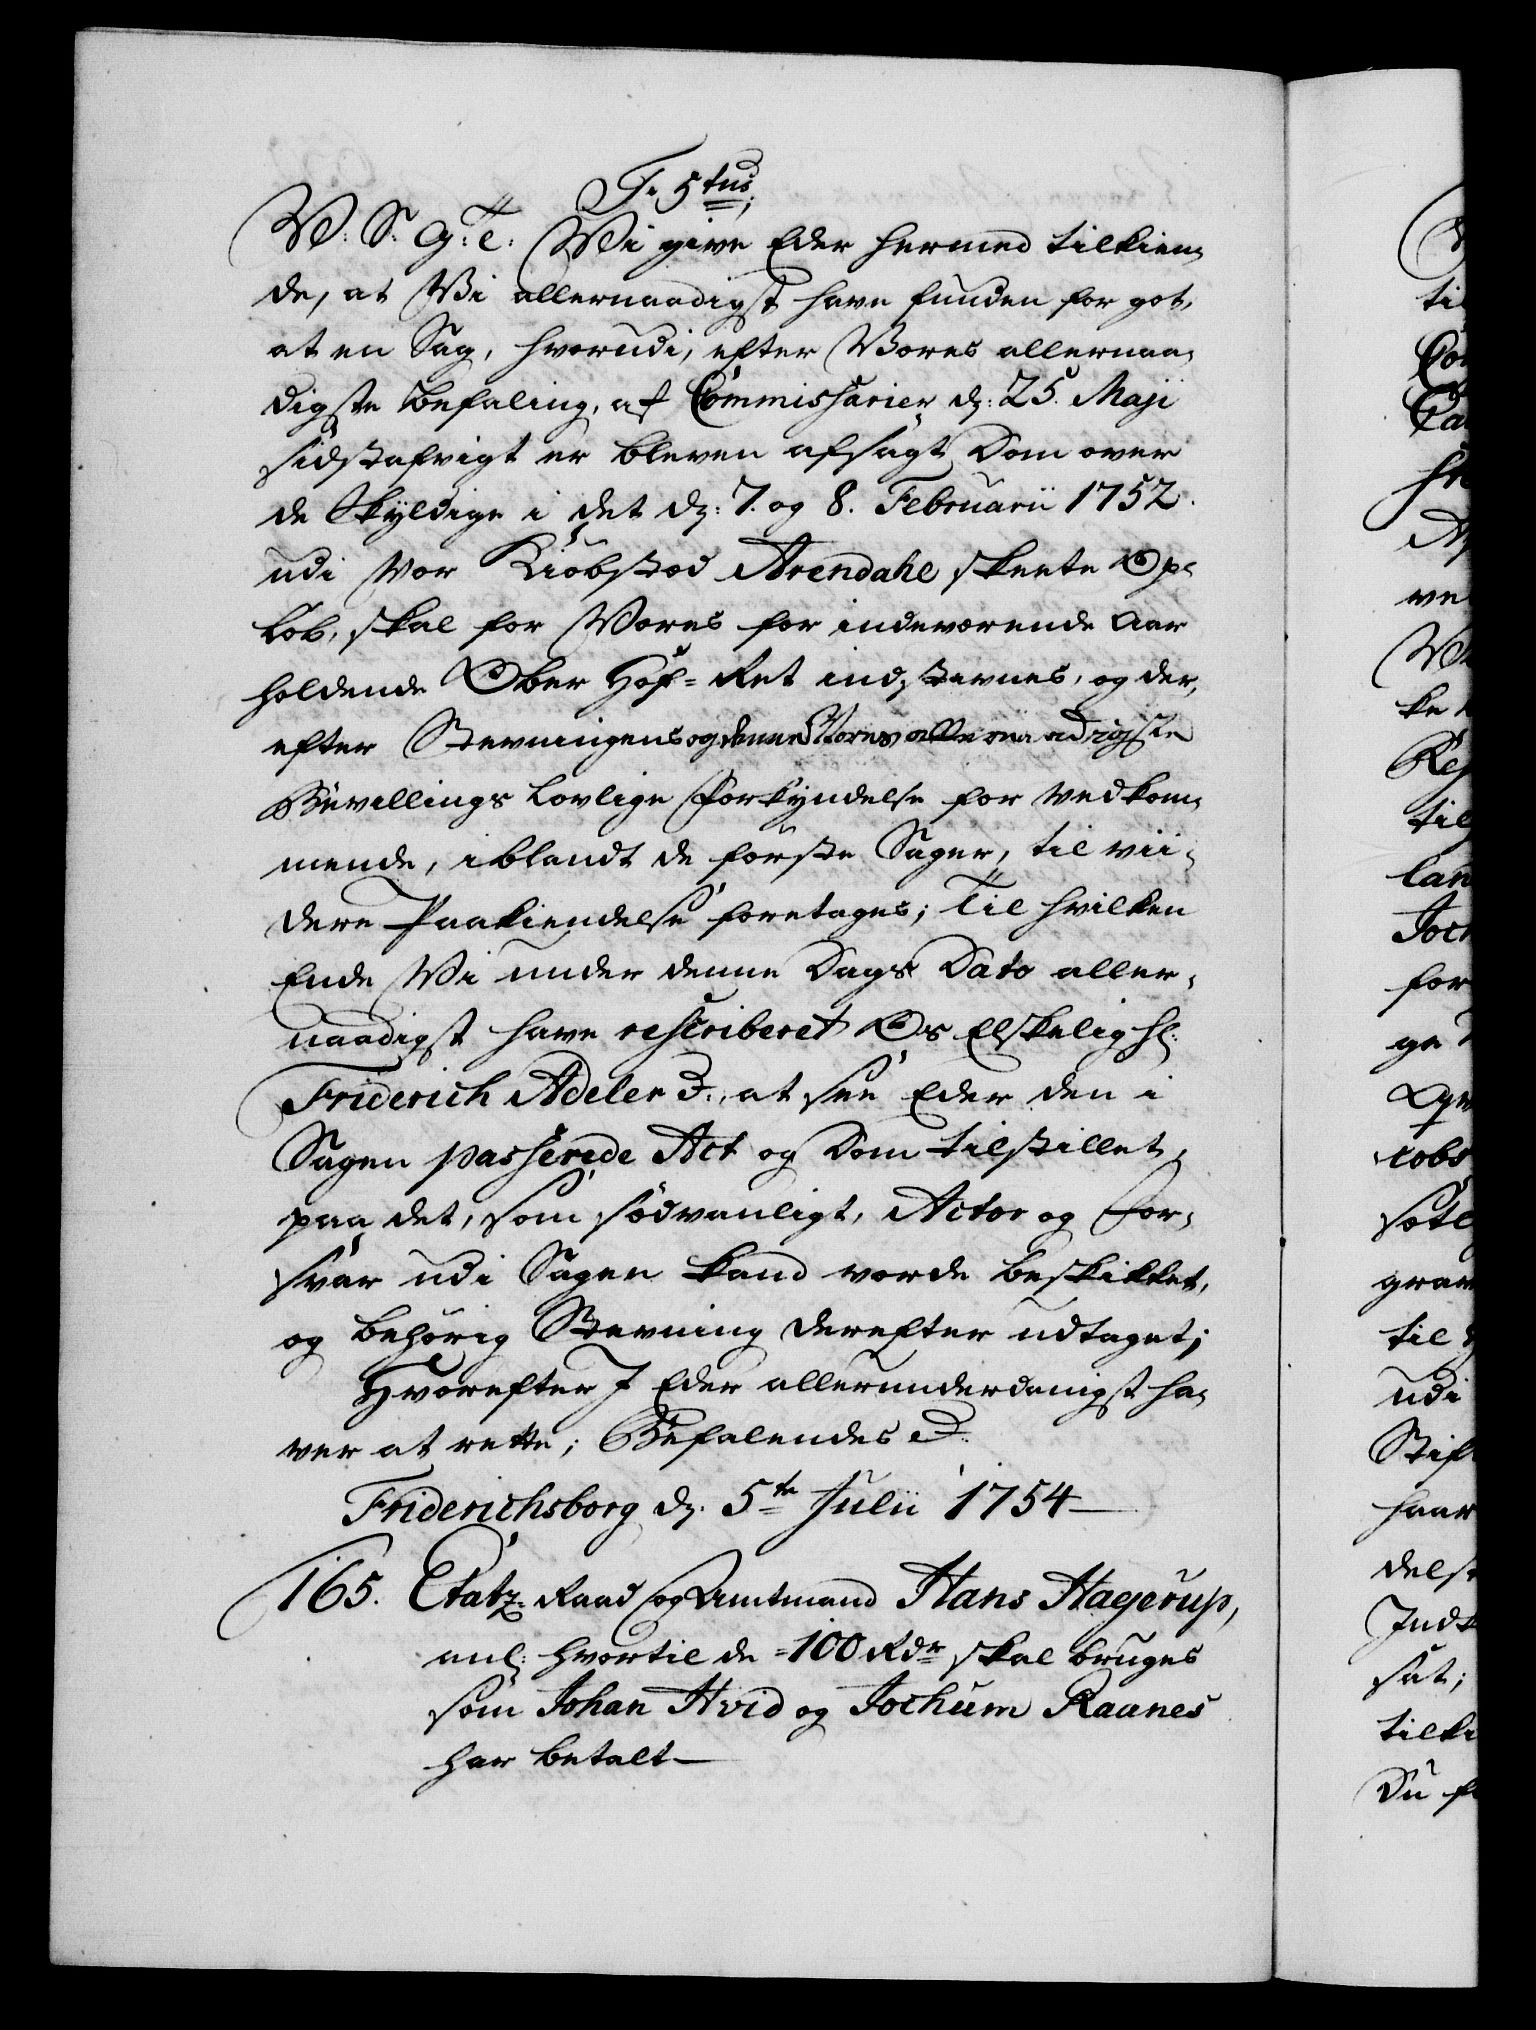 F. 5tus,
W: S: G: T: Wi give Eder hermed tilkien-
de, at Wi allernaadigst have funden for got,
at en Sag, hvorudi, efter Wores allernaa-
digste Befaling, af Commissarier dζ: 25. Maji
sidstafvigt er bleven afsagt Dom over
de Skyldige i det dζ: 7. og 8. Februarii 1752.
udi Vor Kiöbsted Arendahl skeete Op-
löb, skal for Wores for indeværende Aar
holdende Ober Hof-Ret indstevnes, og der,
efter Stevningens og denne Vores allernaadigste
Bevillings lovlige Forkyndelse for vedkom-
mende, iblandt de förste Sager, til vii-
dere Paakiendelse foretages; Til hvilken
Ende Wi under denne Dags Dato aller-
naadigst have rescriberet Os Elskelig Hl:
Friderich Adeler p., at see Eder den i
Sagen passerede Act og Dom tilstillet,
paa det, som sædvanligt, Actor og For-
svar udi Sagen kand vorde beskikket,
og behörig Stevning derefter udtaget;
Hvorefter I Eder allerunderdanigst ha-
ver at rette; Befalendes p.
Friderichsborg dζ. 5te Julii 1754
165. Etatz-Raad og Amtmand Hans Hagerup,
anl: hvortil de 100 Rdr skal bruges
som Johan Hvid og Jochum Raanes
har betalt
til
ve
ke
til
for
ge
til
udi
Stif
haar
Ind
sat;
tilki
Du